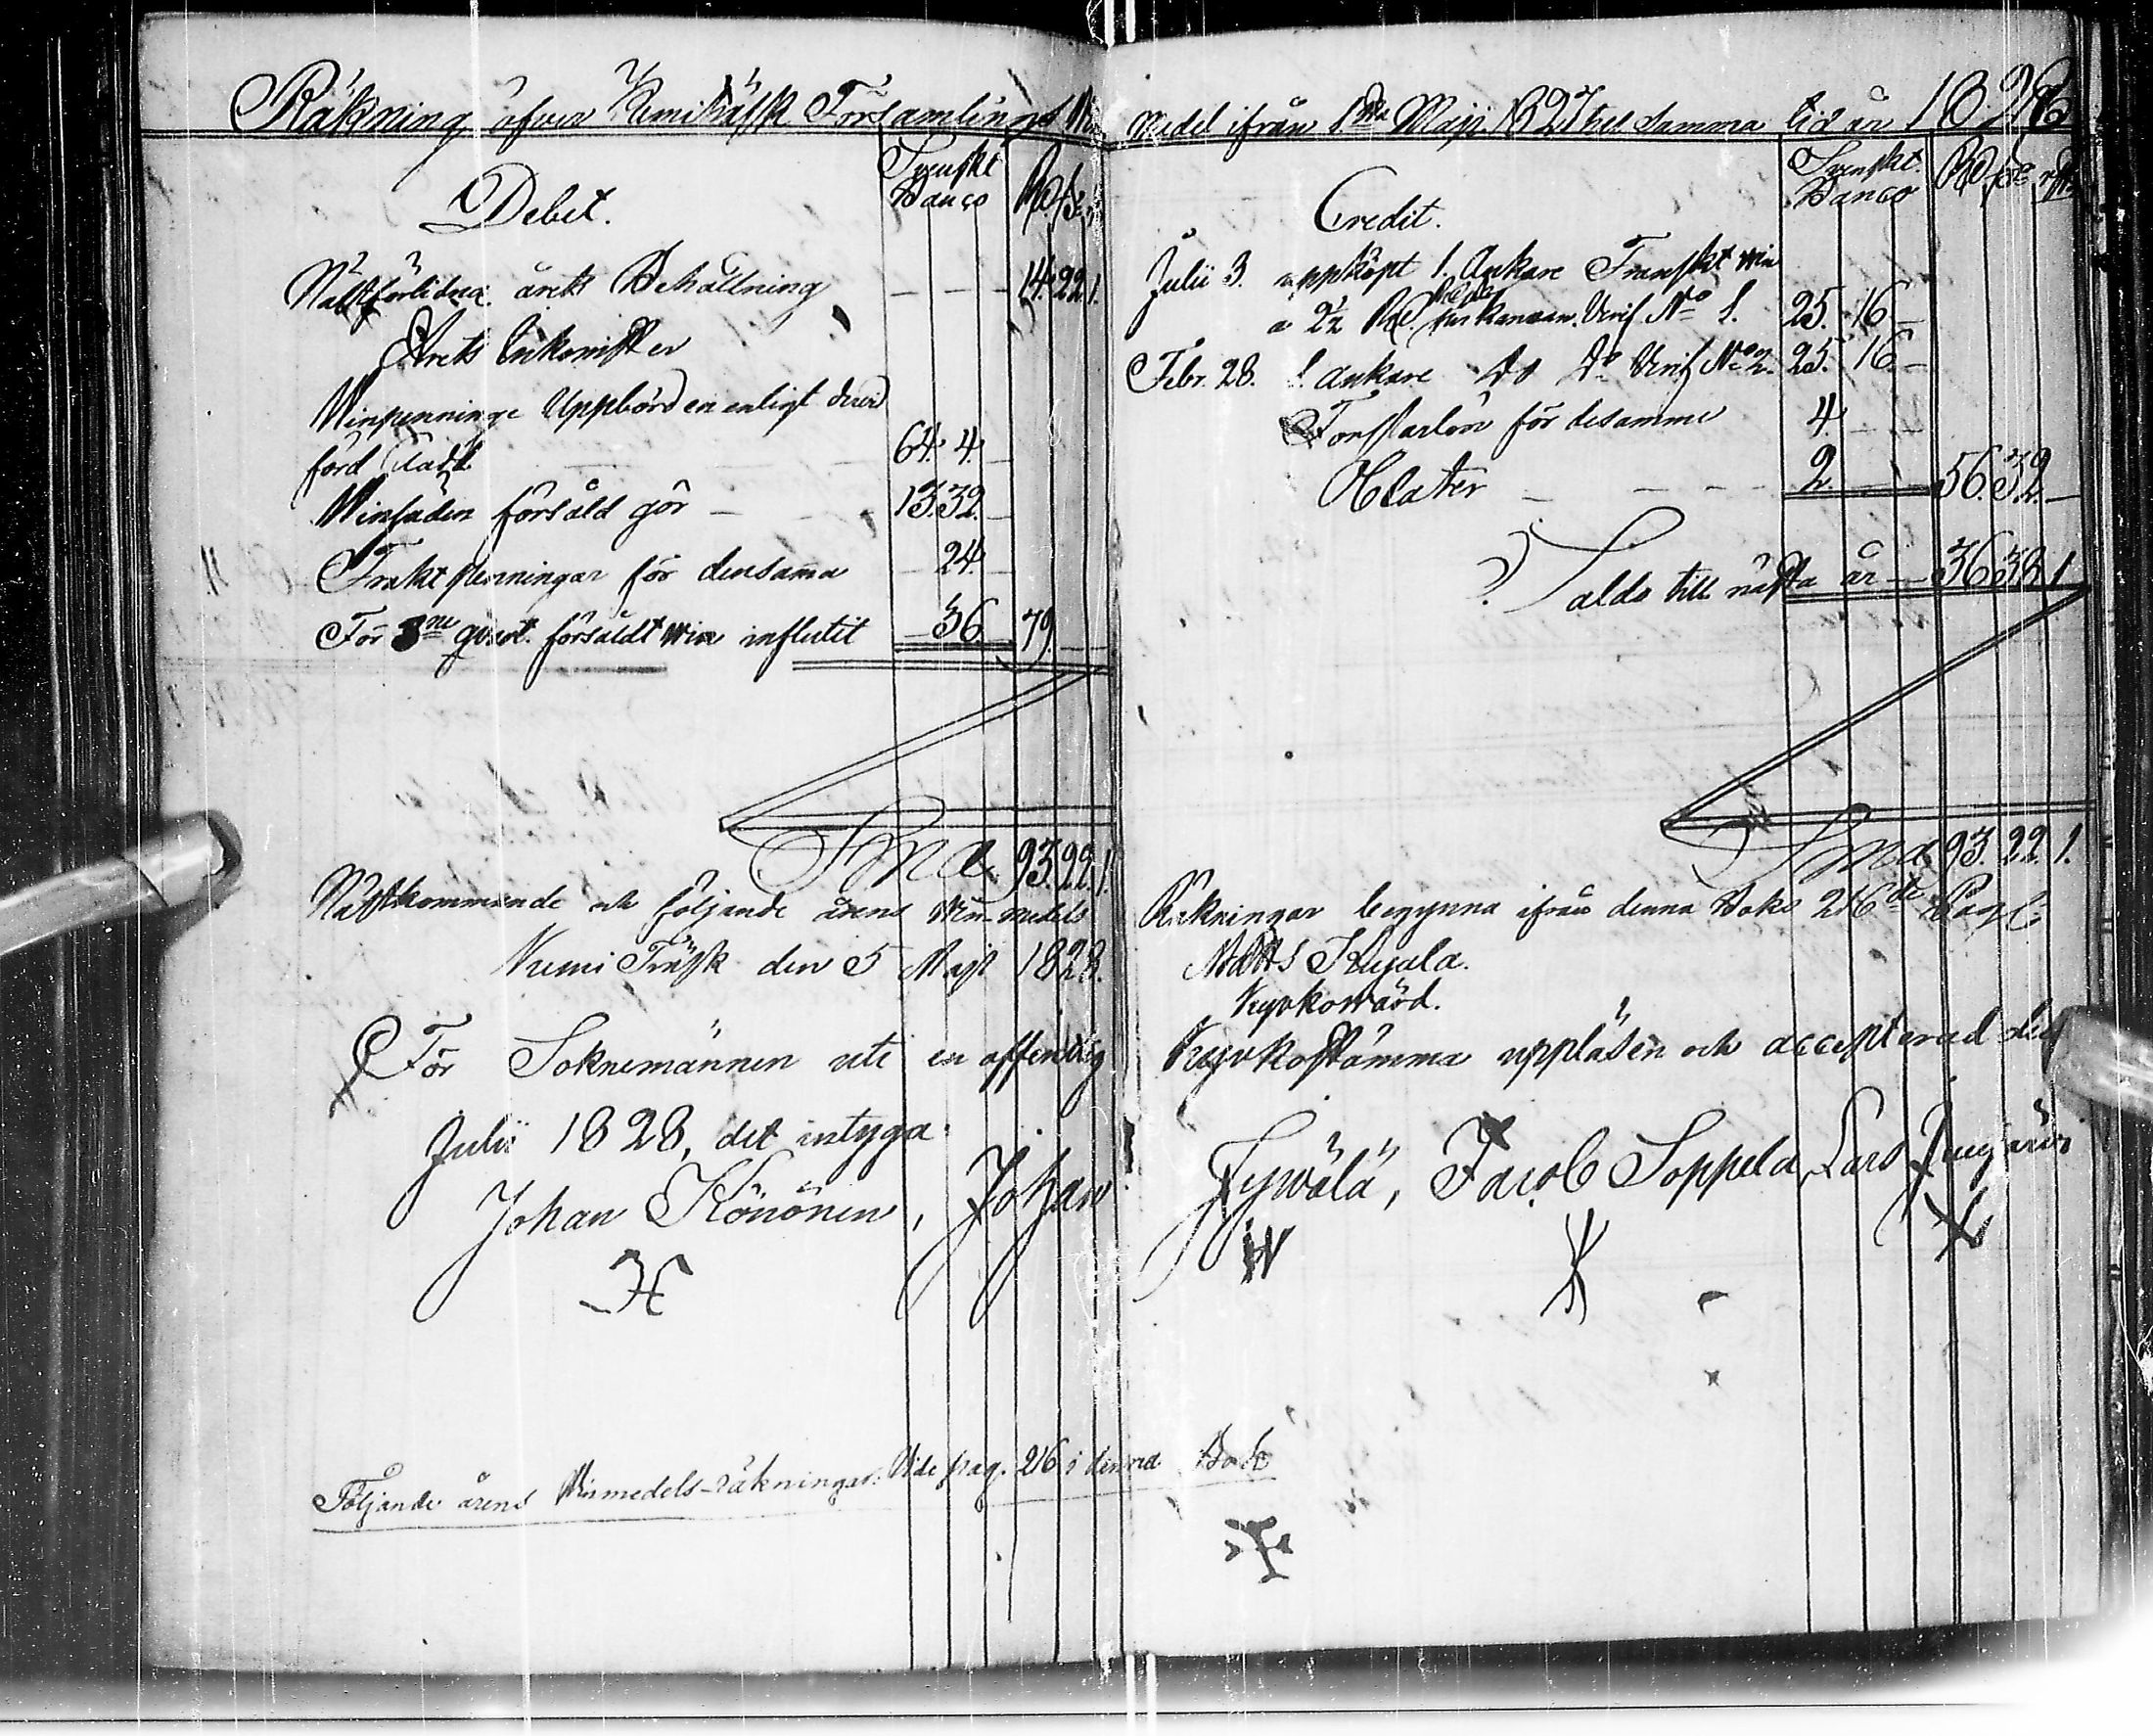 Räkning öfver Kemiträsk Församlings Win
Debet.
Svenskt
Banco
Rd. sk.
Nästförlidna årets Behållning — — — 14. 22. 1.
Årets Inkomster
Winpenninge Uppbörden enligt deröfver
förd Längd — — 64. 4. —
Winsäden försåld gör — — 13. 32. —
Fraktpenningar för densama — 24. —
För 3ne qvart. försåldt win influtit — 36. — 79. —
Sma 93. 22. 1.
Nästkommande och följande årens Win-medels
Kemi Träsk den 5 Maji 1828.
För Soknemännen uti en offentlig
Julii 1828, det intyga
Johan Könönen, Johan
Följande årens Winmedels-räkningar: Vide pag. 216 i denna Bok
medel ifrån 1sta Maji 1827 till samma tid år 1828
Credit.
Svenskt.
Banco
Rd. sk. rst.
Julii 3. uppköpt 1. Ankare Franskt win
a 2½ Rd. per kannan. Verif. No 1. 25. 16. —
Febr. 28. 1. ankare do do Verif No 2. 25. 16. —
Forslarlön för desamme 4. —
Oblater — — — 2. — 56. 32. —
Saldo till nästa år — 36. 38. 1
Sma 93. 22. 1.
Räkningar begynna ifrån denna Boks 216de Pag:
Matts Kujala.
Kyrkowärd.
Kyrkostämma uppläsen och accepterad den
Jywälä, Jacob Soppela, Lars